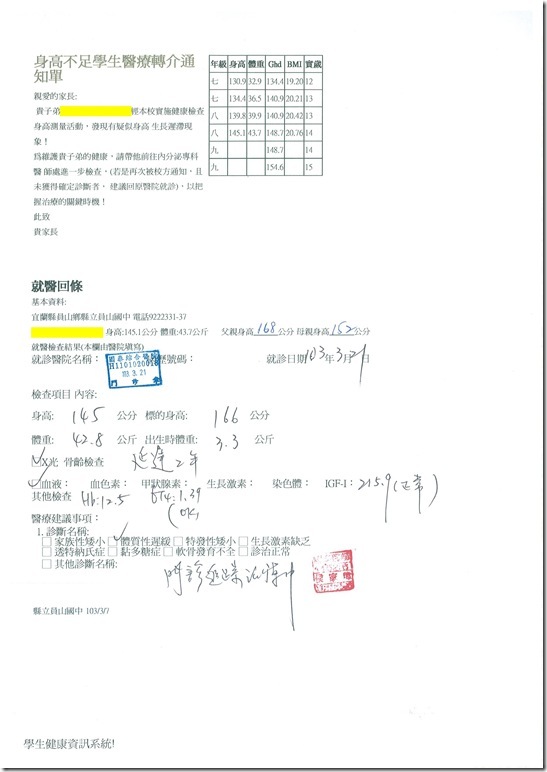 身高不足學生醫療轉介通
知單
親愛的家長:
貴子弟 經本校實施健康檢查
身高測量活動，發現有疑似身高 生長遲滯現
象！
為維護貴子弟的健康，請帶他前往內分泌專科
醫 師處進一步檢查，(若是再次被校方通知，且
未獲得確定診斷者， 建議回原醫院就診)，以把
握治療的關鍵時機！
此致
貴家長
年級 身高 體重 Ghd BMI 實歲
七 130.9 32.9 134.4 19.20 12
七 134.4 36.5 140.9 20.21 13
八 139.8 39.9 140.9 20.42 13
八 145.1 43.7 148.7 20.76 14
九 148.7 14
九 154.6 15
就醫回條
基本資料:
宜蘭縣員山鄉縣立員山國中 電話9222331-37
身高:145.1公分 體重:43.7公斤 父親身高168公分 母親身高152公分
就醫檢查結果(本欄由醫院填寫)
就診醫院名稱： 歷號碼： 就診日期103年3月21日
H1101020018
103. 3. 21
檢查項目 內容:
身高: 145 公分 標的身高: 166 公分
體重: 42.8 公斤 出生時體重: 3.3 公斤
☑X光 骨齡檢查 延遲2年
☑血液： 血色素： 甲狀腺素： 生長激素： 染色體： IGF-I：215.9(正常)
其他檢查 Hb:12.5 fT4:1.39
(OK)
醫療建議事項：
1. 診斷名稱:
□ 家族性矮小 ☑ 體質性遲緩 □ 特發性矮小 □ 生長激素缺乏
□ 透特納氏症 □ 黏多糖症 □ 軟骨發育不全 □ 診治正常
□ 其他診斷名稱:
門診追蹤治療中
縣立員山國中 103/3/7
學生健康資訊系統!